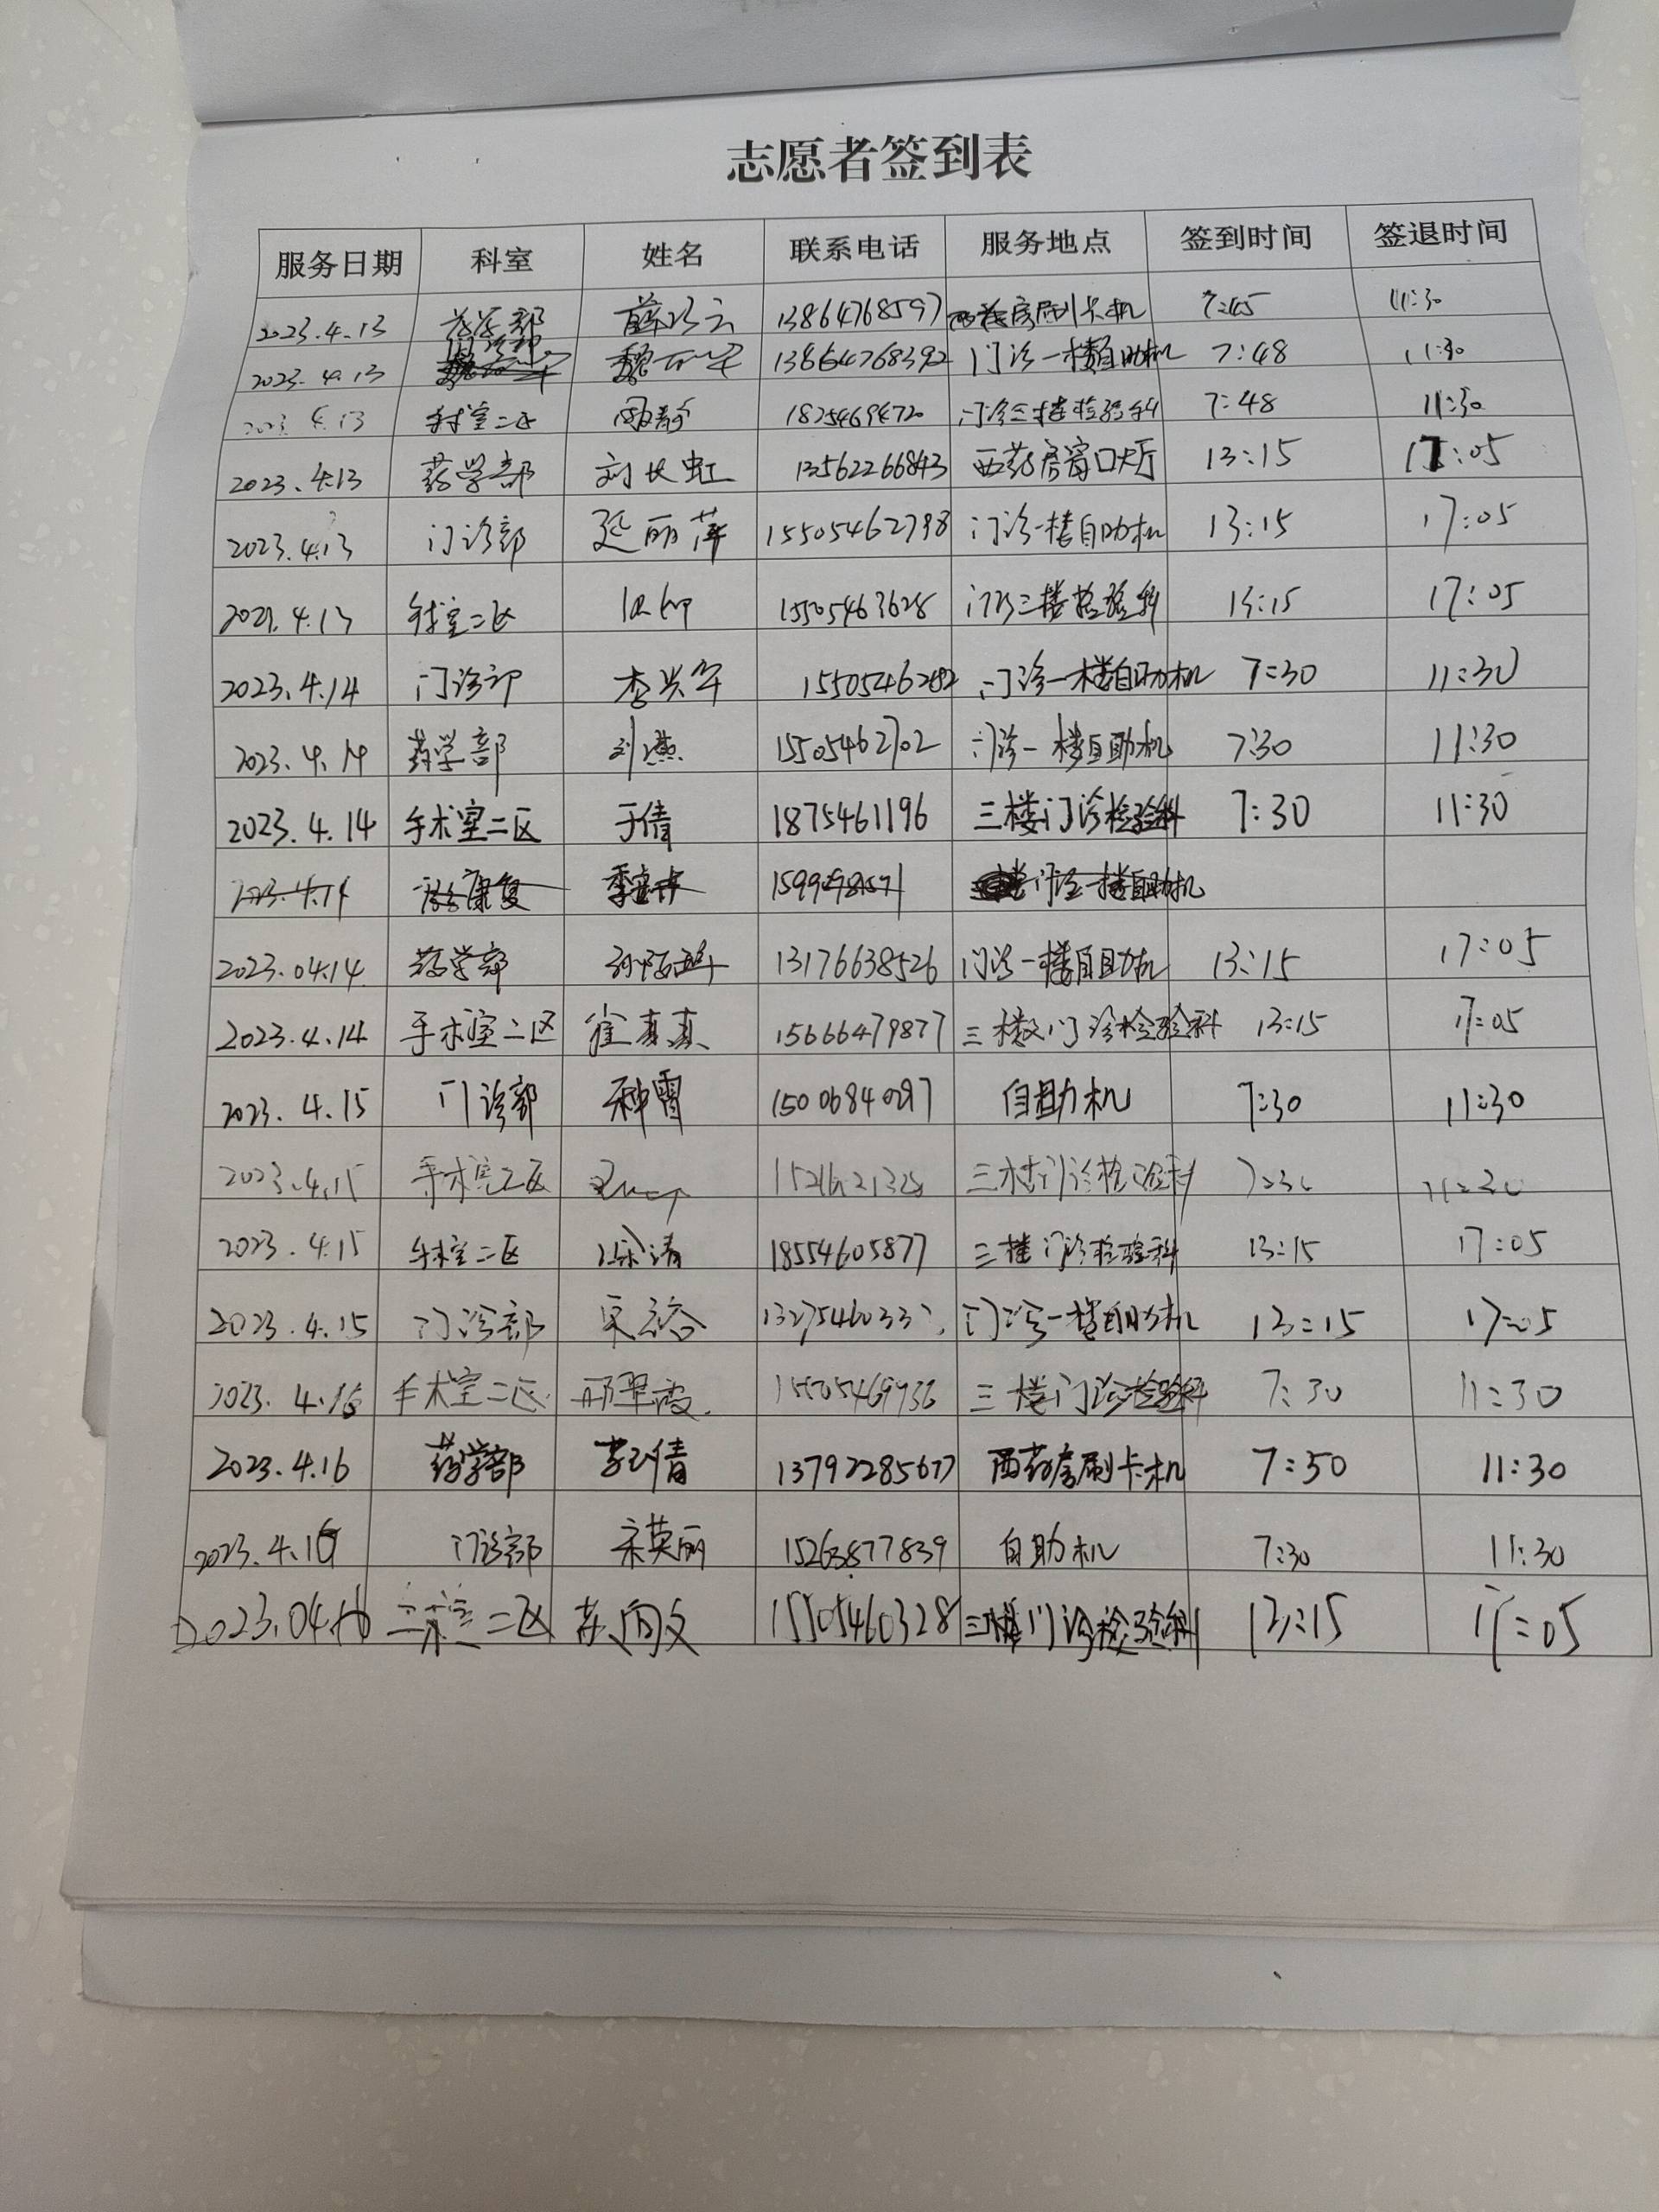 志愿者签到表
服务日期 科室 姓名 联系电话 服务地点 签到时间 签退时间
2023.4.13 药学部 薛 13864768597 西药房刷卡机 7:45 11:30
2023.4.13 门诊部 魏 13864768392 门诊一楼自助机 7:48 11:30
2023.4.13 手术室二区 周静 18254694720 门诊三楼检验科 7:48 11:30
2023.4.13 药学部 刘长虹 13562266843 西药房窗口大厅 13:15 17:05
2023.4.13 门诊部 延丽萍 15505462798 门诊一楼自助机 13:15 17:05
2023.4.13 手术室二区 15505463628 门诊三楼检验科 13:15 17:05
2023.4.14 门诊部 李兴军 15505462 门诊一楼自助机 7:30 11:30
2023.4.14 药学部 刘燕 15505462702 门诊一楼自助机 7:30 11:30
2023.4.14 手术室二区 于倩 1875461196 三楼门诊检验科 7:30 11:30
2023.4.14 康复 门诊一楼自助机
2023.04.14 药学部 13176638526 门诊一楼自助机 13:15 17:05
2023.4.14 手术室二区 崔真真 15666479877 三楼门诊检验科 13:15 17:05
2023.4.15 门诊部 种雪 15006840297 自助机 7:30 11:30
2023.4.15 手术室二区 三楼门诊检验科 7:30 11:30
2023.4.15 手术室二区 徐清 18554605877 三楼门诊检验科 13:15 17:05
2023.4.15 门诊部 门诊一楼自助机 13:15 17:05
2023.4.16 手术室二区 邢翠霞 15505469936 三楼门诊检验科 7:30 11:30
2023.4.16 药学部 13792285677 西药房刷卡机 7:50 11:30
2023.4.16 门诊部 宋英丽 15263877839 自助机 7:30 11:30
2023.04.16 手术室二区 苏向文 15505460328 三楼门诊检验科 13:15 17:05